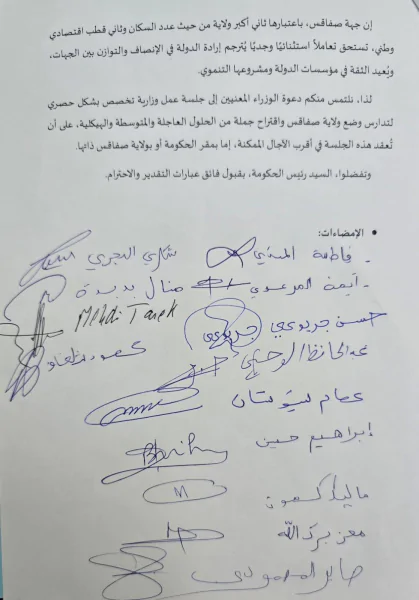 إن جهة صفاقس، باعتبارها ثاني أكبر ولاية من حيث عدد السكان وثاني قطب اقتصادي
وطني، تستحق تعاملاً استثنائيًا وجديًا يُترجم إرادة الدولة في الإنصاف والتوازن بين الجهات،
ويُعيد الثقة في مؤسسات الدولة ومشروعها التنموي.
لذا، نلتمس منكم دعوة الوزراء المعنيين إلى جلسة عمل وزارية تخصص بشكل حصري
لتدارس وضع ولاية صفاقس واقتراح جملة من الحلول العاجلة والمتوسطة والهيكلية، على أن
تُعقد هذه الجلسة في أقرب الآجال الممكنة، إما بمقر الحكومة أو بولاية صفاقس ذاتها.
وتفضلوا، السيد رئيس الحكومة، بقبول فائق عبارات التقدير والاحترام.
• الإمضاءات:
- فاطمة المسدي شكري البحري
- أيمن المرعوي منال بديدة
Mehdi Tarek
حسن جربوعي جربوعي
عبد الحافظ الوحيشي
عصام شوشان
إبراهيم حسين
معز بركالله
صابر المصمودي